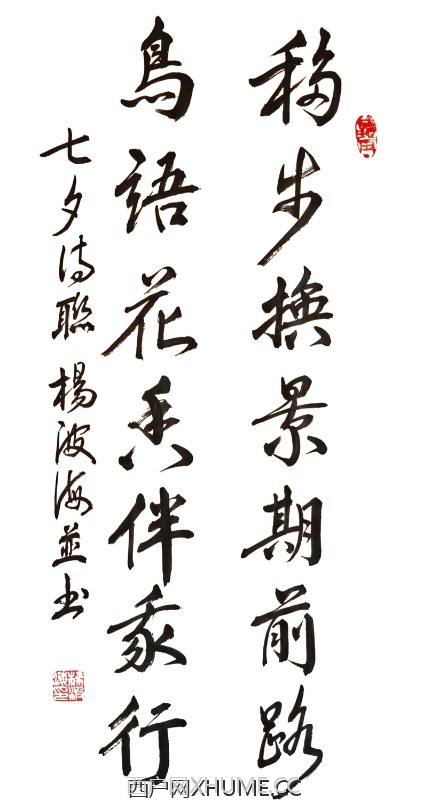 移步換景期前路
鳥語花香伴我行
七夕詩聯楊波海並书
西户网XHUME.CC